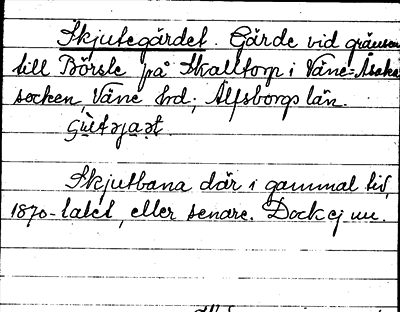 Skjutegärdet. Gärde vid gränsen
till Börsle på Skalltorp i Väne-Åsaka
socken, Väne hrd; Älfsborgs län.
Skjutbana där i gammal tid,
1870-talet, eller senare. Dock ej nu.